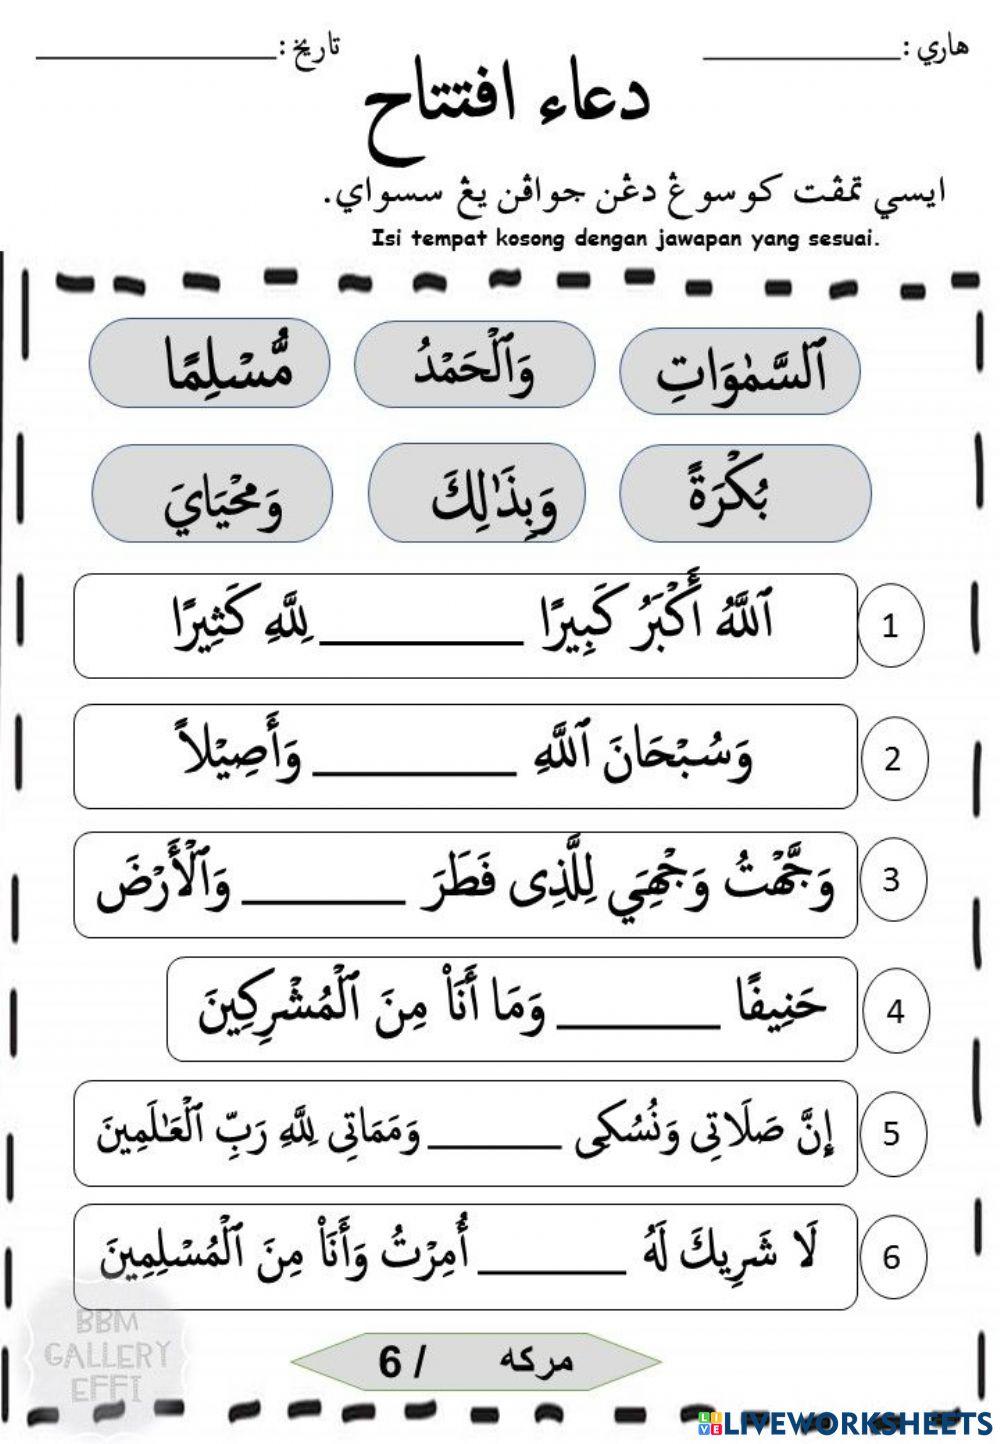 هاري : تاريخ :
دعاء افتتاح
ايسي تمڤت كوسوڠ دڠن جواڤن يڠ سسواي.
Isi tempat kosong dengan jawapan yang sesuai.
ٱلسَّمٰوَاتِ وَٱلْحَمْدُ مُّسْلِمًا
بُكْرَةً وَبِذَٰلِكَ وَمَحْيَايَ
1 ٱللَّهُ أَكْبَرُ كَبِيرًا ________ لِلَّهِ كَثِيرًا
2 وَسُبْحَانَ ٱللَّهِ ________ وَأَصِيْلاً
3 وَجَّهْتُ وَجْهِيَ لِلَّذِى فَطَرَ ________ وَٱلْأَرْضَ
4 حَنِيفًا ________ وَمَا أَنَا۠ مِنَ ٱلْمُشْرِكِينَ
5 إِنَّ صَلَاتِى وَنُسُكِى ________ وَمَمَاتِى لِلَّهِ رَبِّ ٱلْعَـٰلَمِينَ
6 لَا شَرِيكَ لَهُ ________ أُمِرْتُ وَأَنَا۠ مِنَ ٱلْمُسْلِمِينَ
مركه / 6
BBM
GALLERY
EFFI
LIVE
LIVEWORKSHEETS